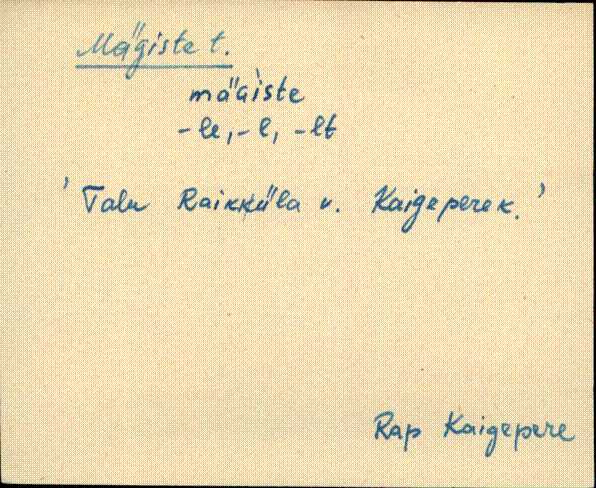 Mägiste t.
mäg̀iste
-le, -l, -lt
'Talu Raikküla v. Kaigepere k.'
Rap Kaigepere